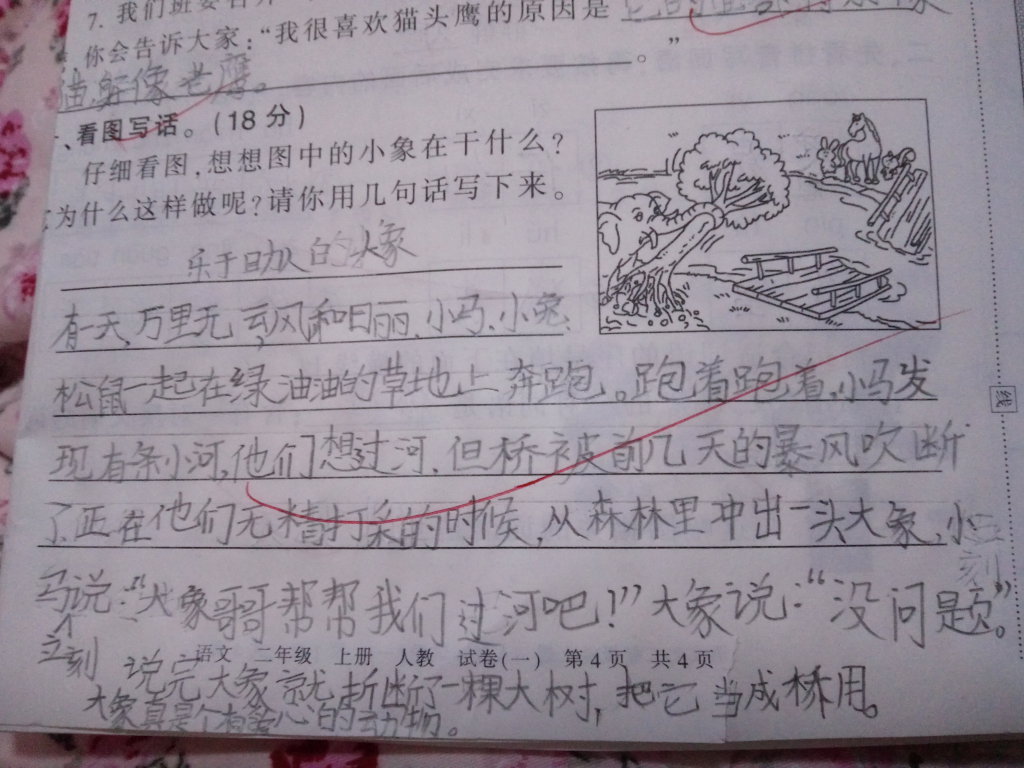 7. 我们班要召开
你会告诉大家：“我很喜欢猫头鹰的原因是
猫，身像老鹰。 。”
、看图写话。(18分)
仔细看图，想想图中的小象在干什么？
为什么这样做呢？请你用几句话写下来。
乐于助人的大象
有一天，万里无云，风和日丽，小马、小兔
松鼠一起在绿油油的草地上奔跑。跑着跑着，小马发
现有条小河，他们想过河，但桥被前几天的暴风吹断
了，正在他们无精打采的时候，从森林里冲出一头大象，小
立刻
马说：“大象哥哥帮帮我们过河吧！”大象说：“没问题”。
个
立刻
语文 二年级 上册 人教 试卷(一) 第4页 共4页
说完大象就折断了一棵大树，把它当成桥用。
大象真是个有爱心的动物。
线